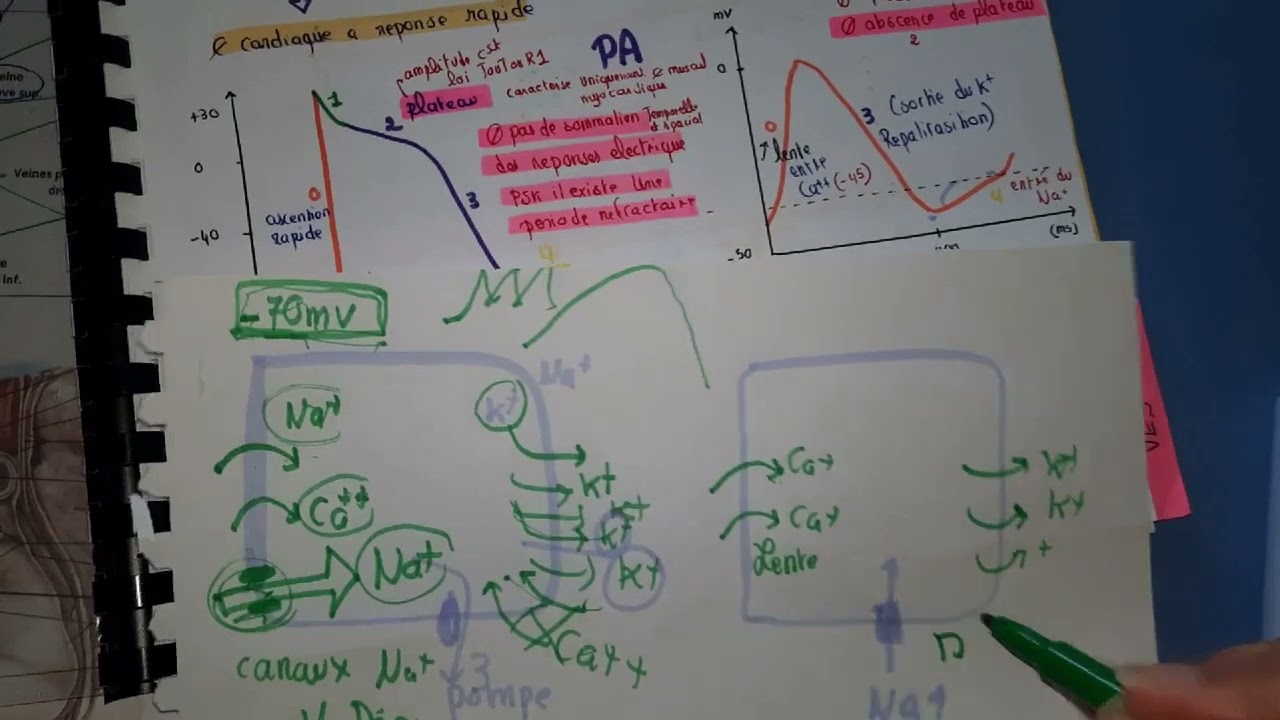 ¢ cardiaque a reponse rapide
amplitude cst
loi Tout ou R1
plateau
PA
caracterise uniquement ¢ muscul
myocardique
∅ pas de sommation Temporelle
& spacial
des reponses electrique
psk il existe une
periode refractaire
+30
0
-40
1
2
3
4
0
ascention
rapide
∅ abscence de plateau
2
mv
0
-50
0
↑ lente
entre
Ca++ (-45)
3
(sortie du K+
Repolirasition)
4
entrée du
Na+
(ms)
eine
ve sup
Veines p
inf.
-70mv
Na+
Na+
K+
K+
Ca++
K+
K+
Na+
K+
Ca++
canaux Na+
3
pompe
Ca+
K+
Ca+
K+
Lente
+
Na+